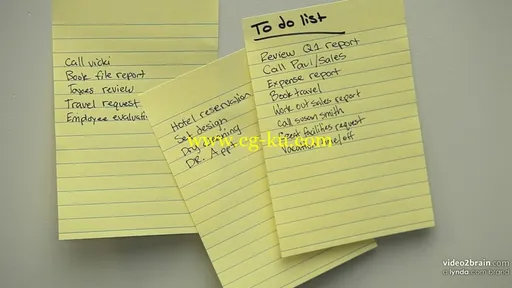 Call Vicki
Book file report
Taxes review
Travel request
Employee evaluation
Hotel reservation
Set design
Dry cleaning
DR. App
To do list
Review Q1 report
Call Paul/sales
Expense report
Book travel
Work out sales report
Call susan smith
facilities request
Vacation
off
www.cg-ku.com
video2brain.com
a lynda.com brand